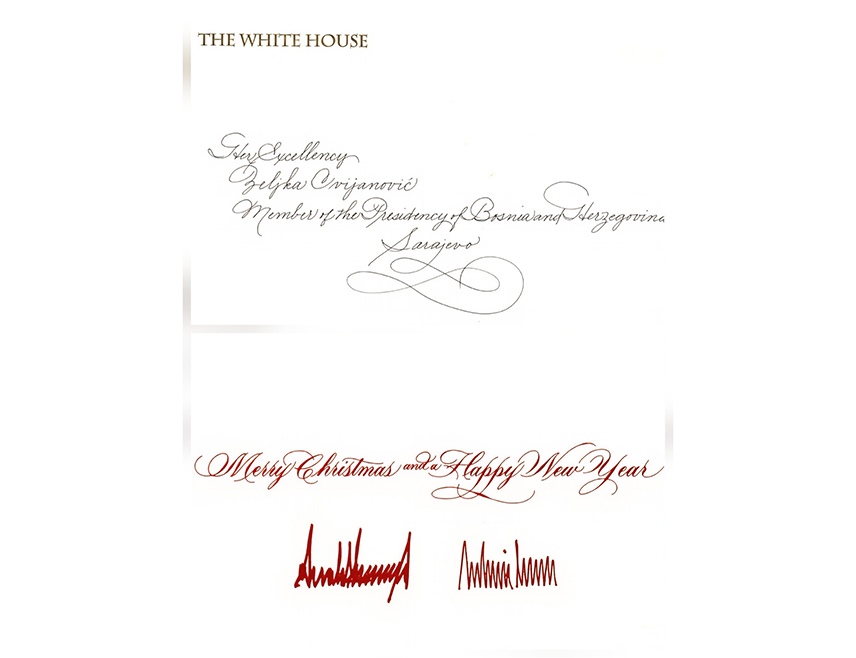 THE WHITE HOUSE
Her Excellency
Zeljka Cvijanović
Member of the Presidency of Bosnia and Herzegovina
Sarajevo
Merry Christmas and a Happy New Year